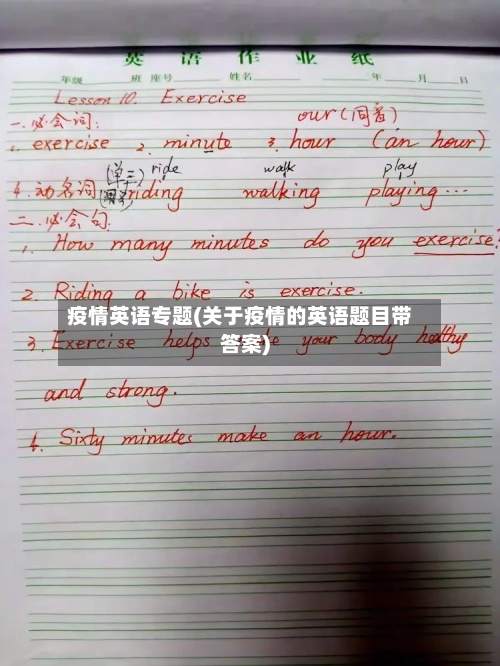 英 语 作 业 纸
年级 班 座号 姓名 年 月 日
Lesson 10. Exercise
一.必会词: our (同音)
1. exercise 2. minute 3. hour (an hour)
(单三) ride walk play
4. 动名词 riding walking playing ...
二.必会句:
1. How many minutes do you exercise?
2. Riding a bike is exercise.
疫情英语专题(关于疫情的英语题目带
答案)
3. Exercise helps your body healthy
and strong.
4. Sixty minutes make an hour.